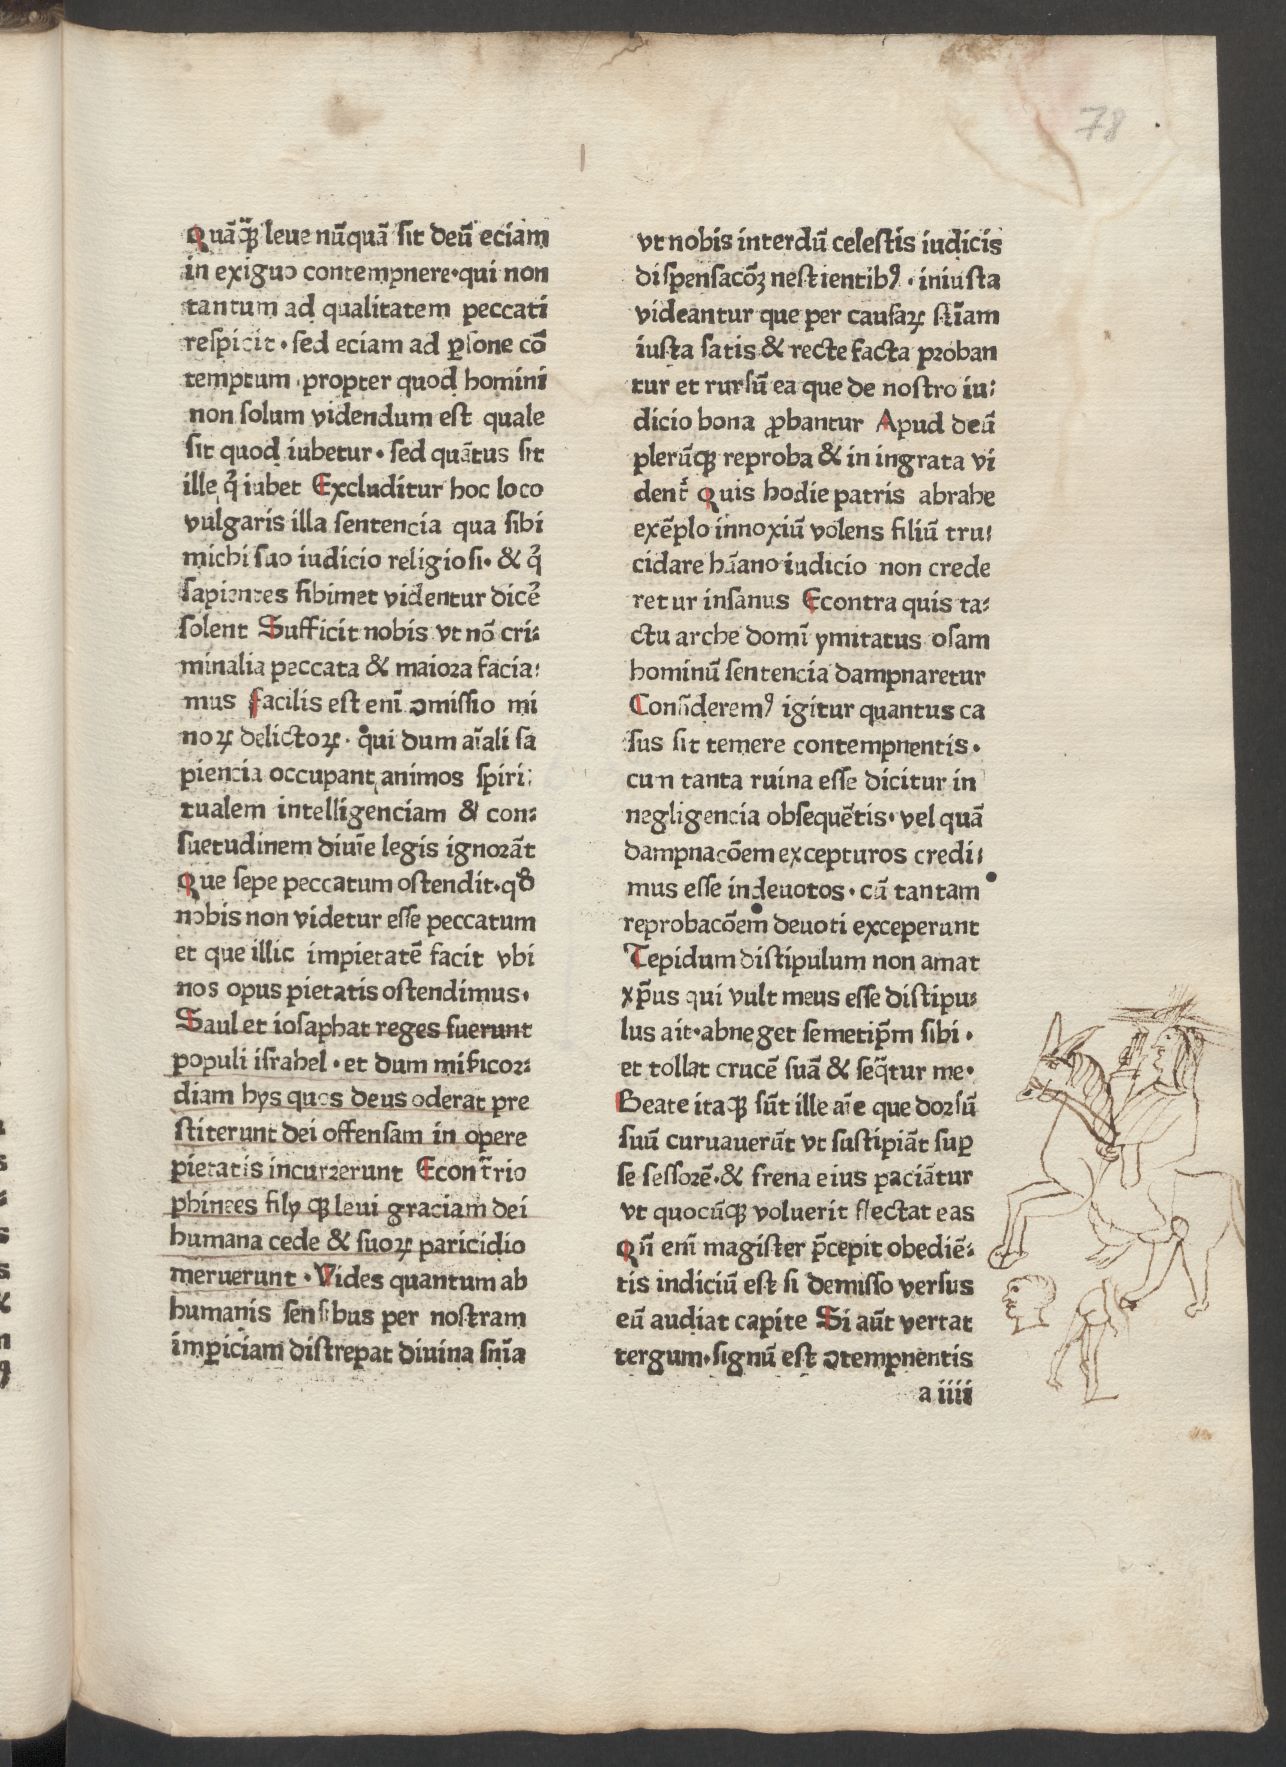 78
Quāq̄ꝫ leue nūquā sit deū eciam
in exiguo contempnere·qui non
tantum ad qualitatem peccati
respicit·sed eciam ad ꝑsone cō
temptum·propter quod homini
non solum videndum est quale
sit quod iubetur·sed quātus sit
ille q̇ iubet Excluditur hoc loco
vulgaris illa sentencia qua sibi
michi suo iudicio religiosi·& q̇
sapientes sibimet videntur dicē
solent Sufficit nobis vt nō cri⸗
minalia peccata & maiora facia⸗
mus facilis est enī ꝯmissio mi
noꝝ delictoꝝ·qui dum aīali sa
piencia occupant animos spiri⸗
tualem intelligenciam & con⸗
suetudinem diuīe legis ignorāt
Que sepe peccatum ostendit·qđ
nobis non videtur esse peccatum
et que illic impietatē facit vbi
nos opus pietatis ostendimus·
Saul et iosaphat reges fuerunt
populi israhel·et dum misericor⸗
diam hys quos deus oderat pre
stiterunt dei offensam in opere
pietatis incurrerunt Econtrio
phinees fily qꝫ leui graciam dei
humana cede & suoꝝ paricidio
meruerunt·Vides quantum ab
humanis sensibus per nostram
impericiam distrepat diuina snīa
vt nobis interdū celestis iudicis
dispensacōꝫ nestientibꝰ·iniusta
videantur que per causaꝝ stīam
iusta satis & recte facta proban
tur et rursū ea que de nostro iu⸗
dicio bona ꝓbantur Apud deū
plerūqꝫ reproba & in ingrata vi
dent̄ Quis hodie patris abrahe
exēplo innoxiū volens filiū tru⸗
cidare hūano iudicio non crede
retur insanus Econtra quis ta⸗
ctu arche domī ymitatus osam
hominū sentencia dampnaretur
Consideremꝰ igitur quantus ca
sus sit temere contempnentis·
cum tanta ruina esse dicitur in
negligencia obsequētis·vel quā
dampnacōem excepturos credi⸗
mus esse indeuotos·cū tantam
reprobacōem deuoti exceperunt
Tepidum distipulum non amat
xp̄us qui vult meus esse distipu⸗
lus ait·abneget semetip̄m sibi·
et tollat crucē suā & seq̄tur me·
Beate itaqꝫ sūt ille aīe que dorsū
suū curuauerūt vt sustipiāt suꝑ
se sessorē·& frena eius paciātur
vt quocūqꝫ voluerit flectat eas
Qn̄ enī magister p̄cepit obediē⸗
tis indiciū est si demisso versus
eū audiat capite Si aūt vertat
tergum·signū est ꝯtempnentis
a iiii